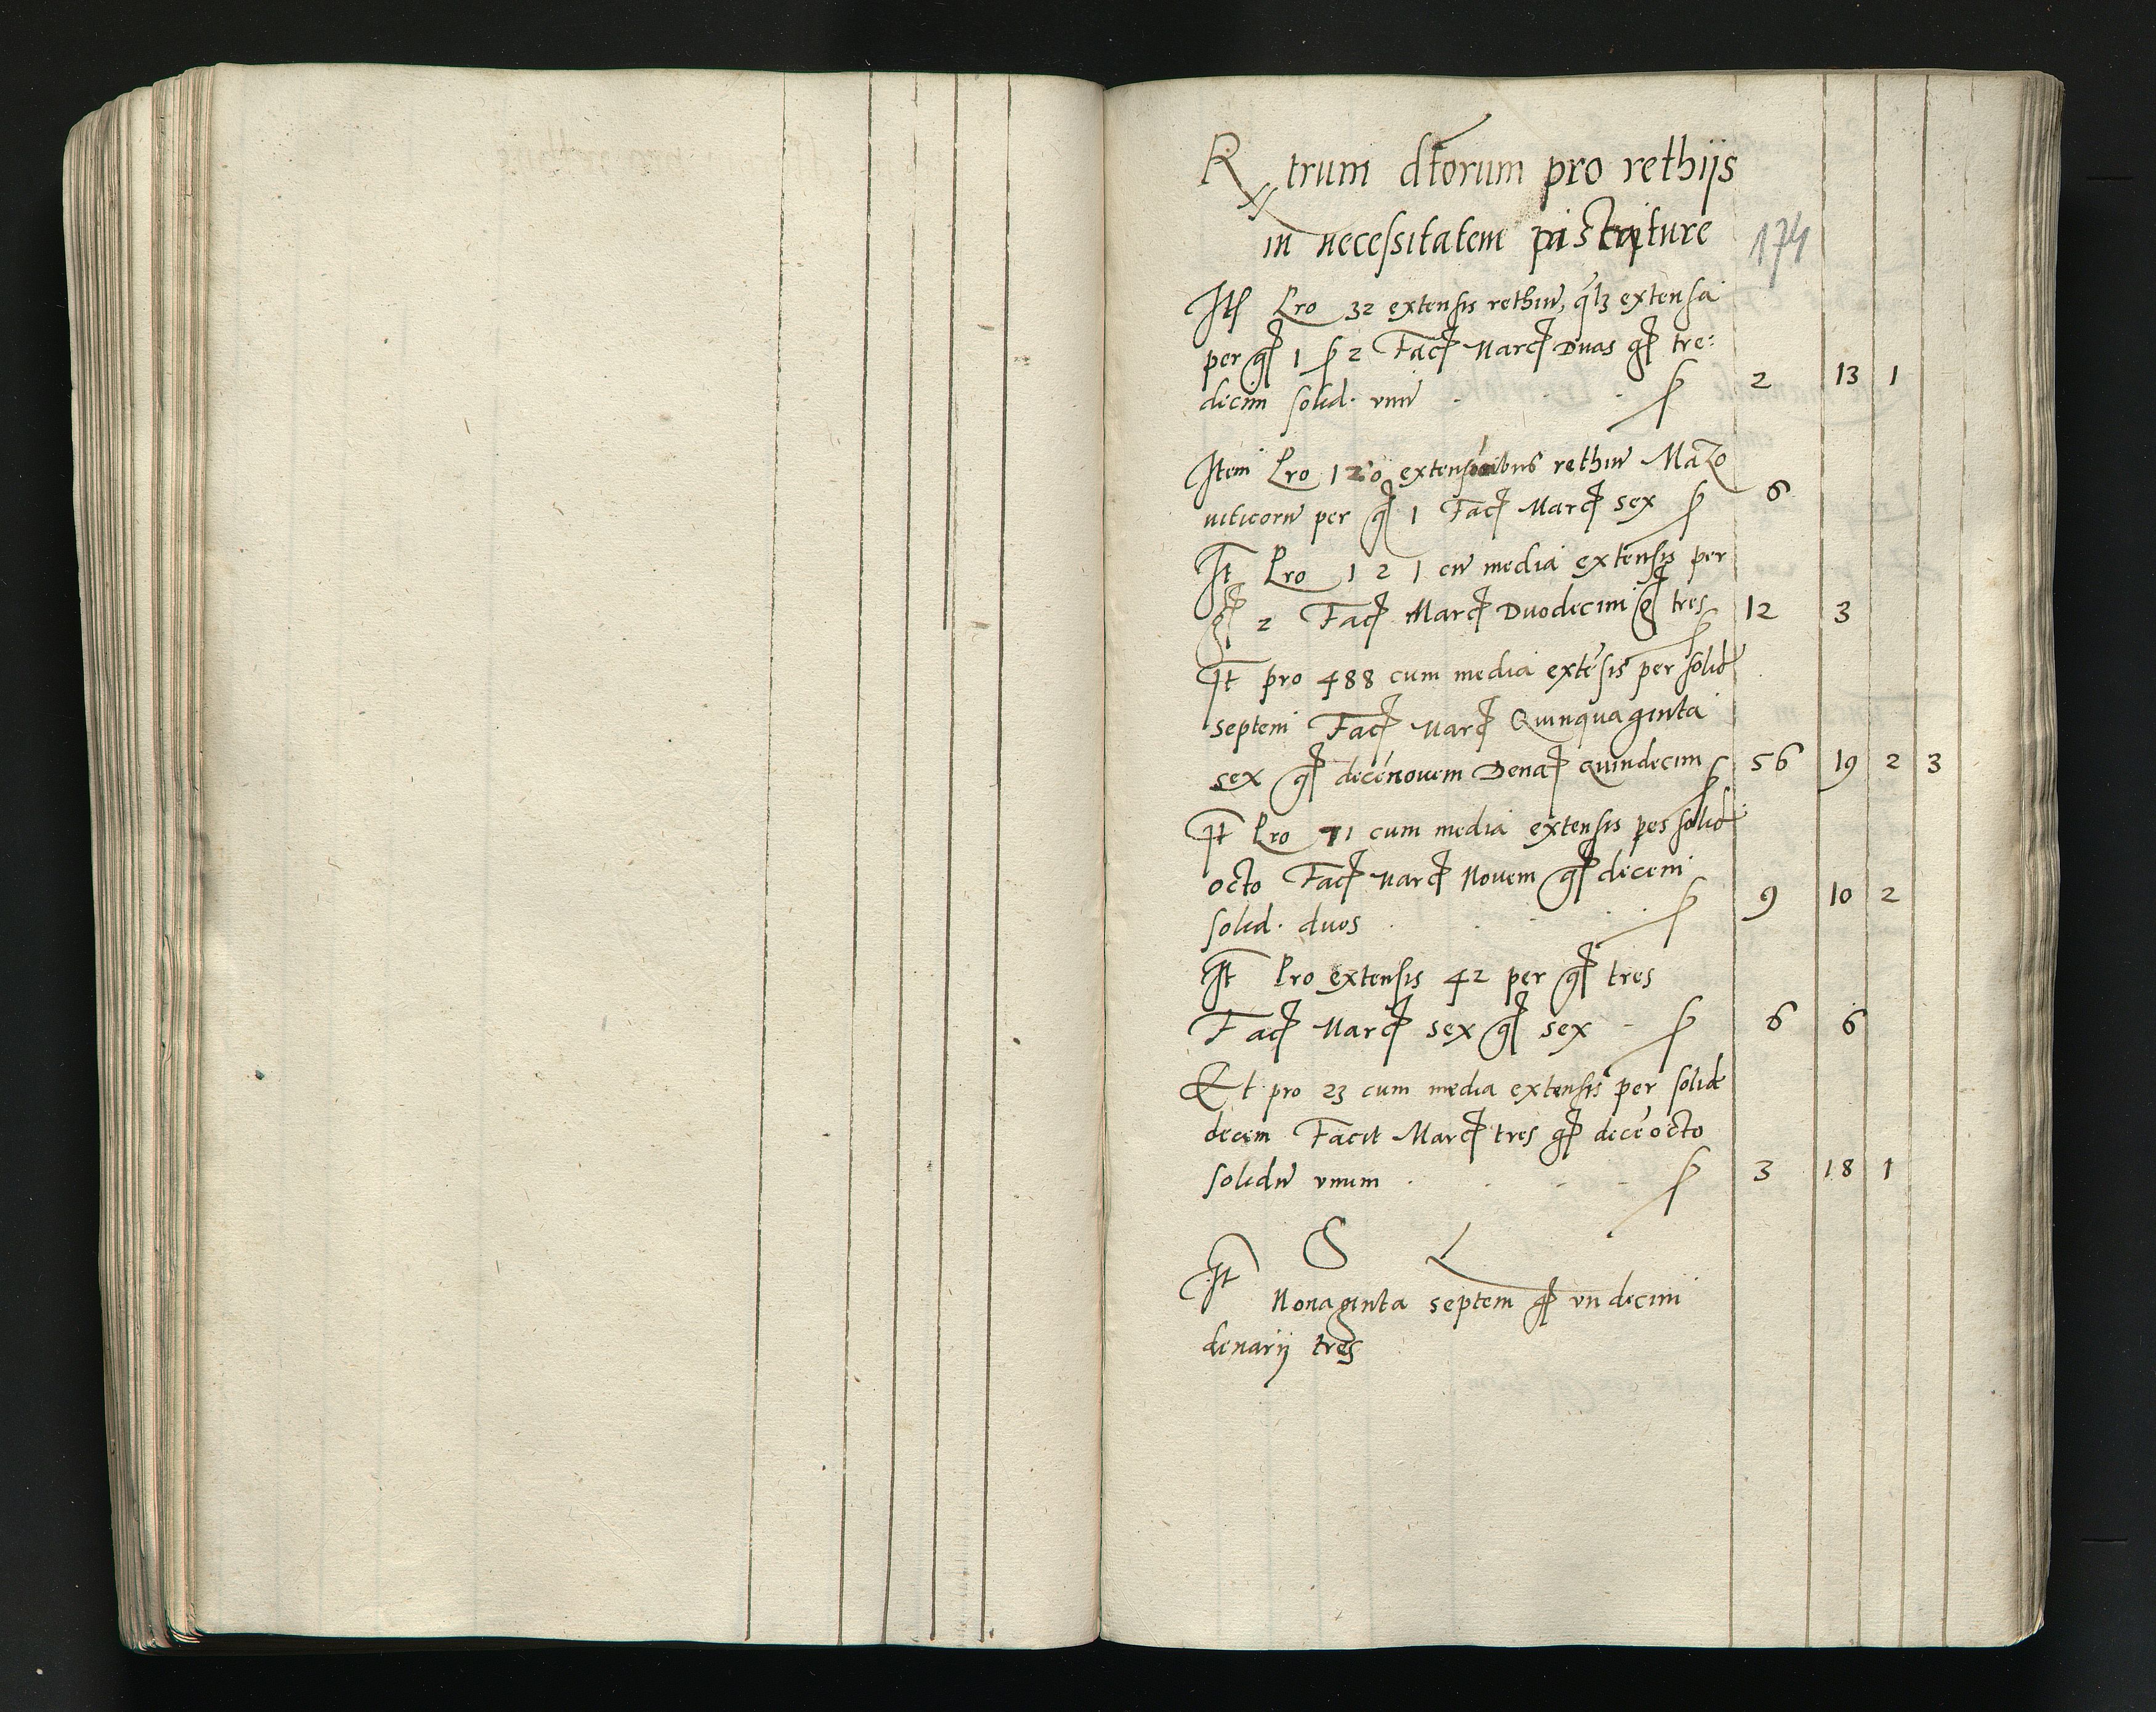 Rx trum dtorum pro rethijs
in necessitatem piscature 174
Itē Pro 32 extensis rethiū, q̄lz extensa
per g̃ 1 ꝑ 2 Fac̃ Marc̃ Duas g̃ tre:
decim solid. vnū 2 13 1
Item Pro 120 extensionibus rethiū Mazo
uiticorū per g̃ 1 Fac̃ Marc̃ sex 6
It̄ Pro 121 cū media extensis per
g̃ 2 Fac̃ Marc̃ Duodecim g̃ tres 12 3
It̄ pro 488 cum media extēsis per solid
septem Fac̃ Marc̃ Quinquaginta
sex g̃ decēnouem Dena̅ Quindecim 56 19 2 3
It̄ Pro 71 cum media extensis per solid
octo Fac̃ Marc̃ Nouem g̃ decem
solid. duos 9 10 2
It̄ Pro extensis 42 per g̃ tres
Fac̃ Marc̃ sex g̃ sex 6 6
Et pro 23 cum media extensis per solid
decem Facit Marc̃ tres g̃ decēocto
solidū vnum 3 18 1
S L
It̄ Nonaginta septem g̃ vndecim
denarij tres